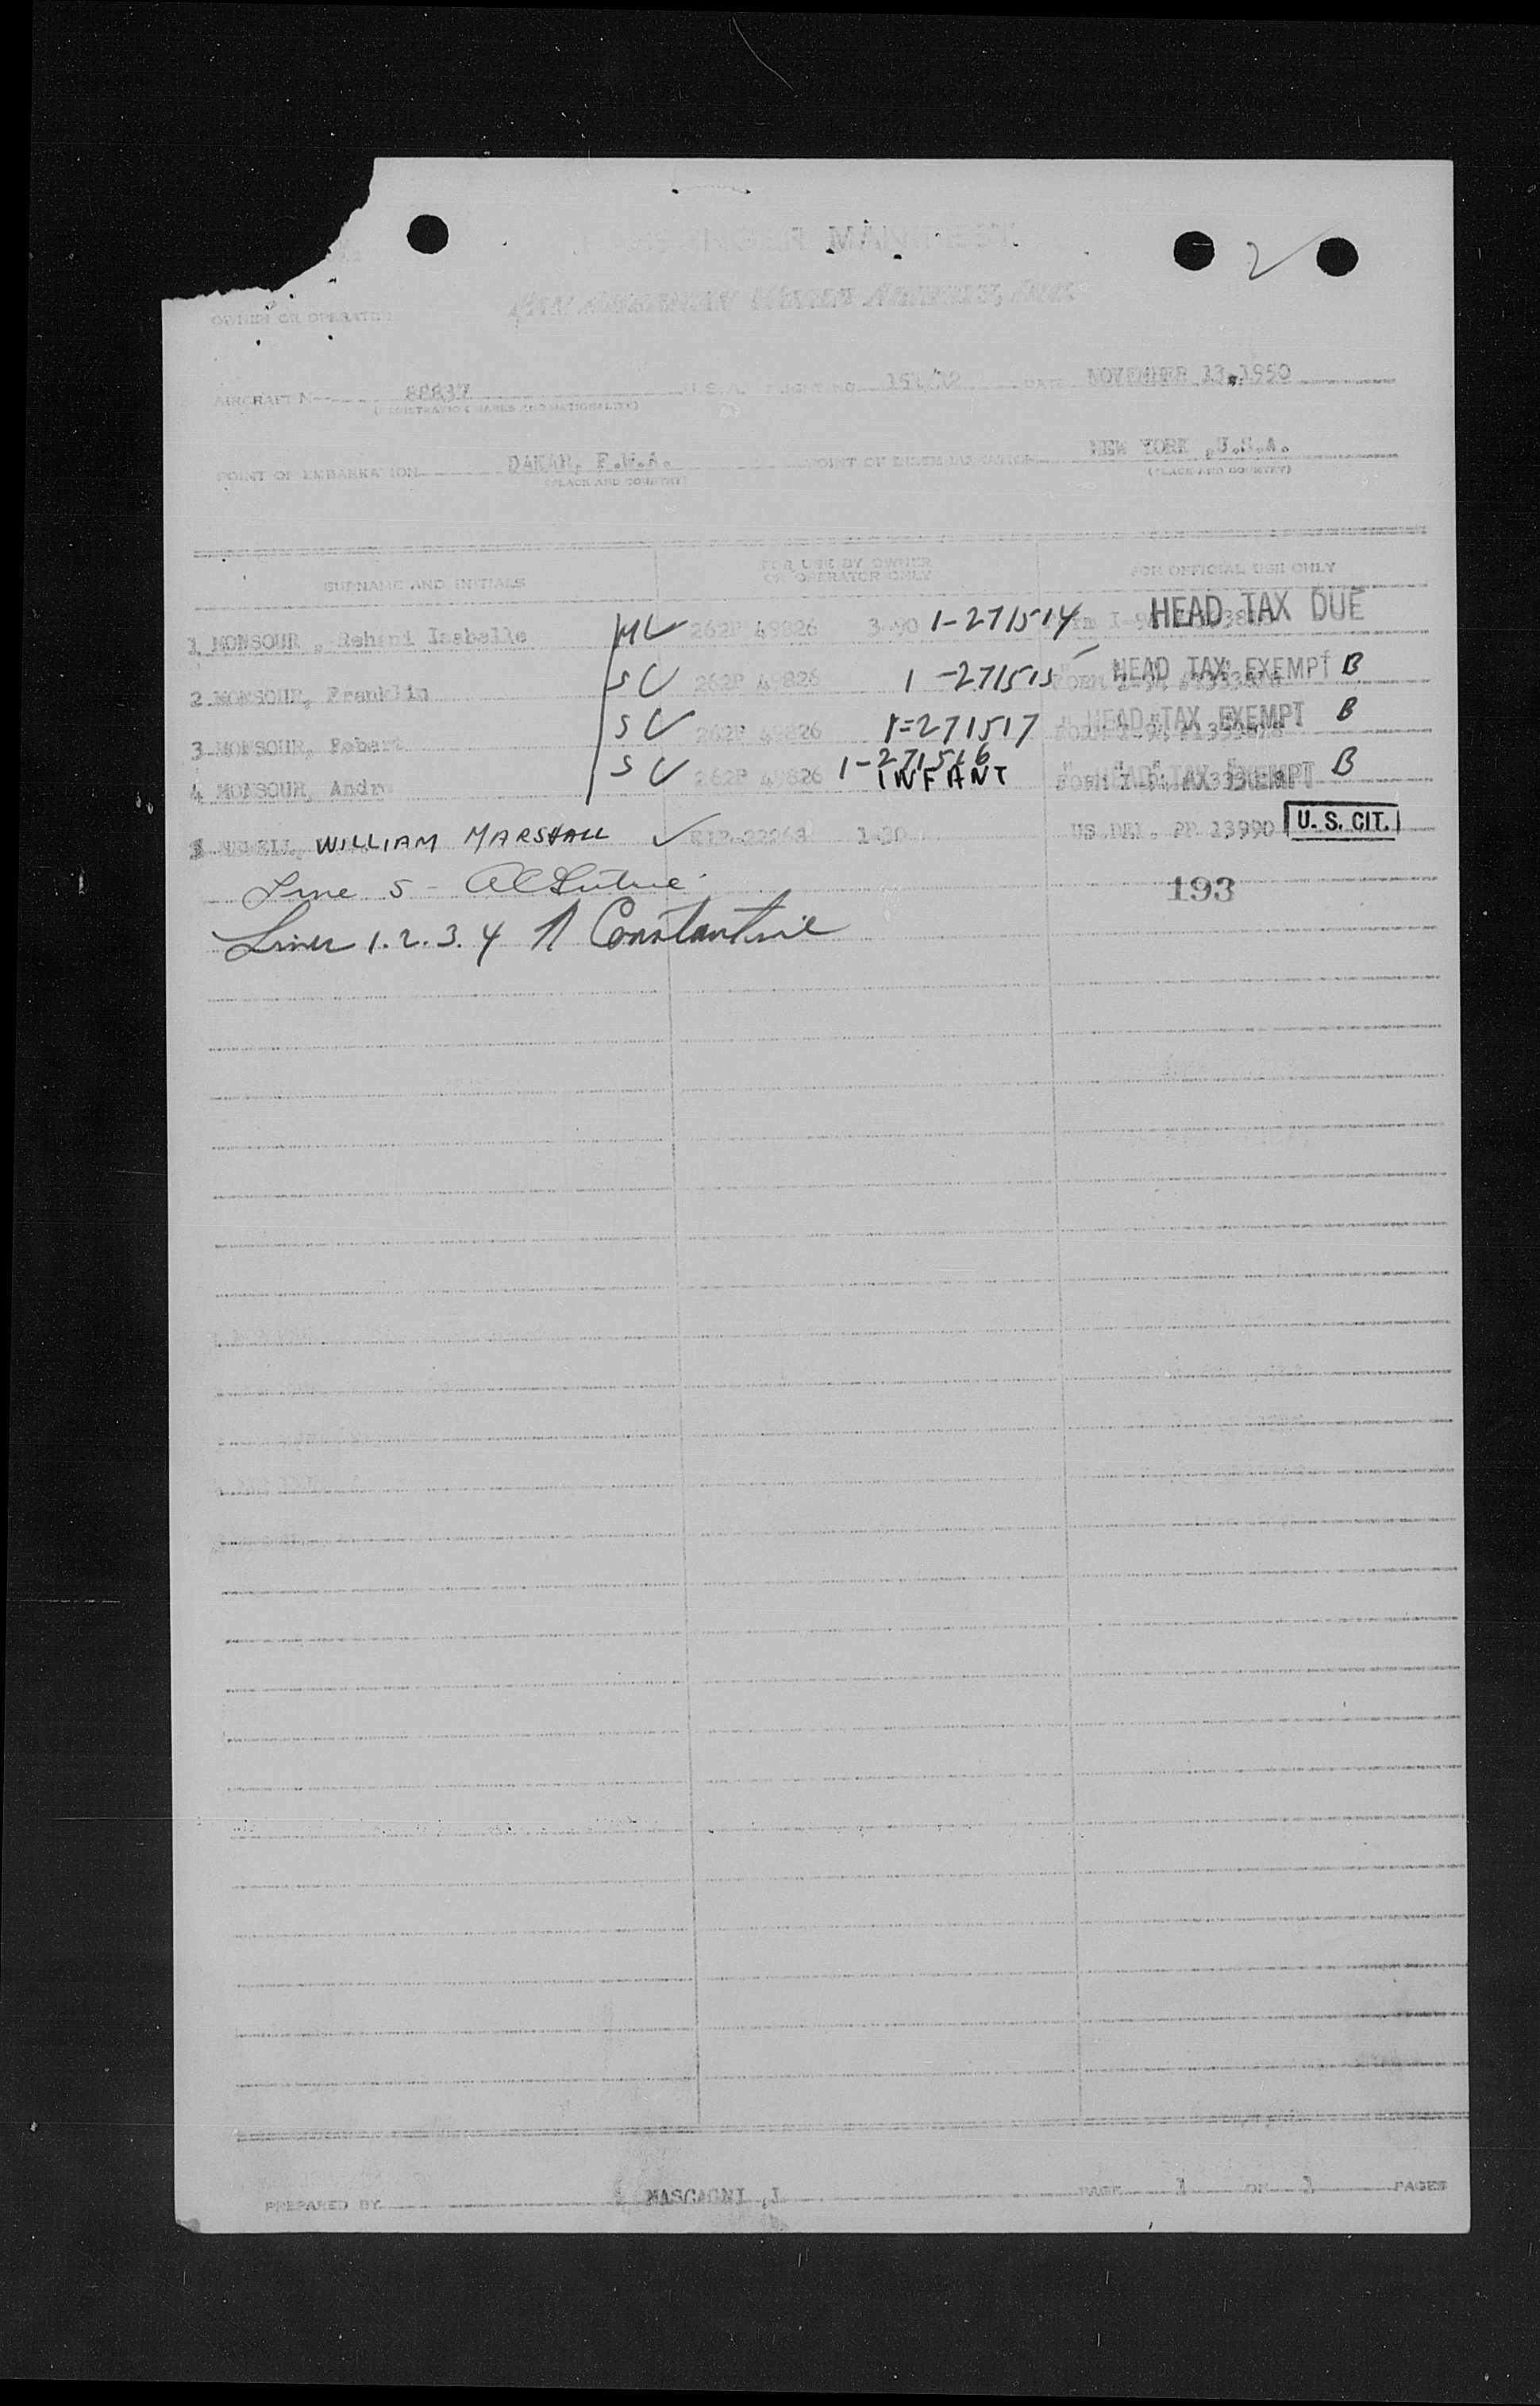 PASSENGER MANIFEST
2
PAN AMERICAN WORLD AIRWAYS, INC.
OWNER OR OPERATOR
AIRCRAFT N 88837 U.S.A. FLIGHT NO. 151/12 DATE NOVEMBER 13, 1950
(REGISTRATION MARKS AND NATIONALITY)
POINT OF EMBARKATION DAKAR, F.W.A. POINT OF DISEMBARKATION NEW YORK ,U.S.A.
(PLACE AND COUNTRY) (PLACE AND COUNTRY)
SURNAME AND INITIALS FOR USE BY OWNER OR OPERATOR ONLY FOR OFFICIAL USE ONLY
1 MONSOUR , Rehani Isabelle M ✓ 262P 49826 3-90 1-271514 HEAD TAX DUE
2 MONSOUR, Franklin S ✓ 262P 49826 1-271515 HEAD TAX EXEMPT B
3 MONSOUR, Robert S ✓ 262P 49826 1=271517 HEAD TAX EXEMPT B
4 MONSOUR, Andre S ✓ 262P 49826 1-271516 INFANT HEAD TAX EXEMPT B
5 WILLIAM MARSHALL ✓ 1-30 PP 13990 U.S. CIT.
Line 5 -
193
Lines 1.2.3.4 Constantine
PREPARED BY MASCAGNI ,I PAGE 1 OF 1 PAGES